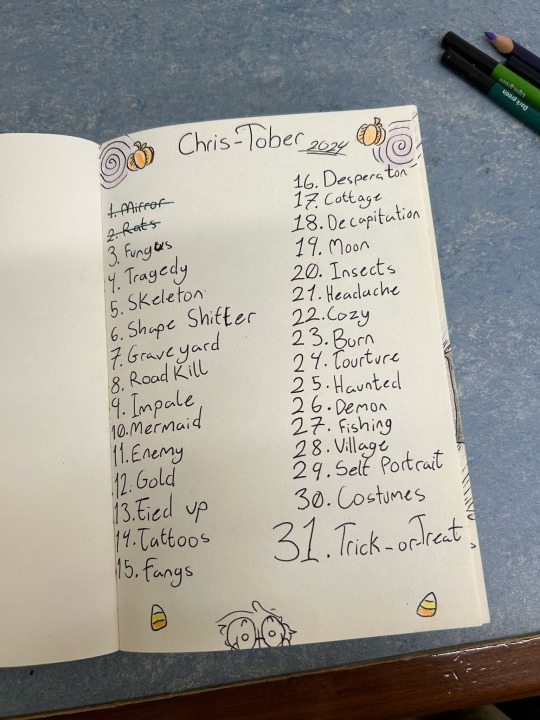 Chris-Tober 2024
1. Mirror
2. Rats
3. Fungus
4. Tragedy
5. Skeleton
6. Shape Shifter
7. Graveyard
8. Road Kill
9. Impale
10. Mermaid
11. Enemy
12. Gold
13. Tied up
14. Tattoos
15. Fangs
16. Desperaton
17. Cottage
18. Decapitation
19. Moon
20. Insects
21. Headache
22. Cozy
23. Born
24. Tourture
25. Haunted
26. Demon
27. Fishing
28. Village
29. Self Portrait
30. Costumes
31. Trick-or-Treat
Light green
Dark green